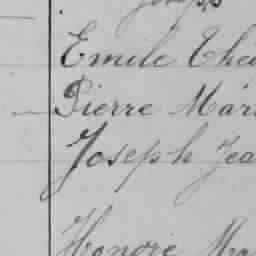 Emile The
Pierre Mar
Joseph Jea
Honoré Ma